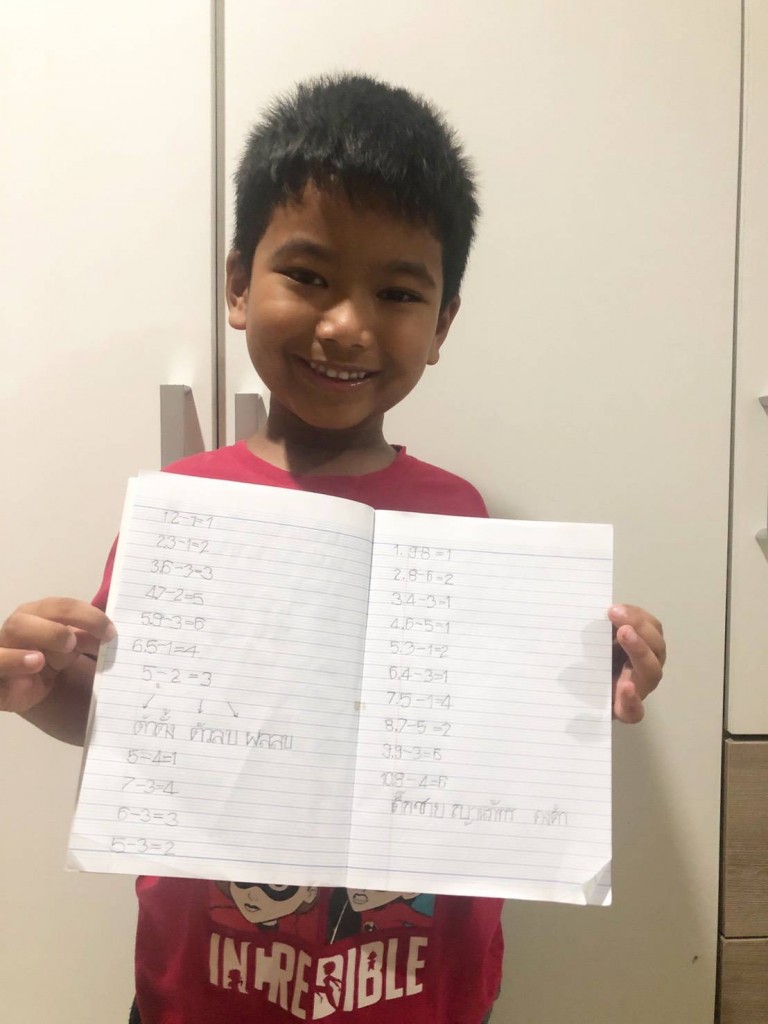 1.2-1=1
2.3-1=2
3.6-3=3
4.7-2=5
5.9-3=6
6.5-1=4
5-2=3
ตัวตั้ง ตัวลบ ผลลบ
5-4=1
7-3=4
6-3=3
5-3=2
1.9-8=1
2.8-6=2
3.4-3=1
4.6-5=1
5.3-1=2
6.4-3=1
7.5-1=4
8.7-5=2
9.9-3=6
10.8-4=6
เด็กชาย
INCREDIBLE